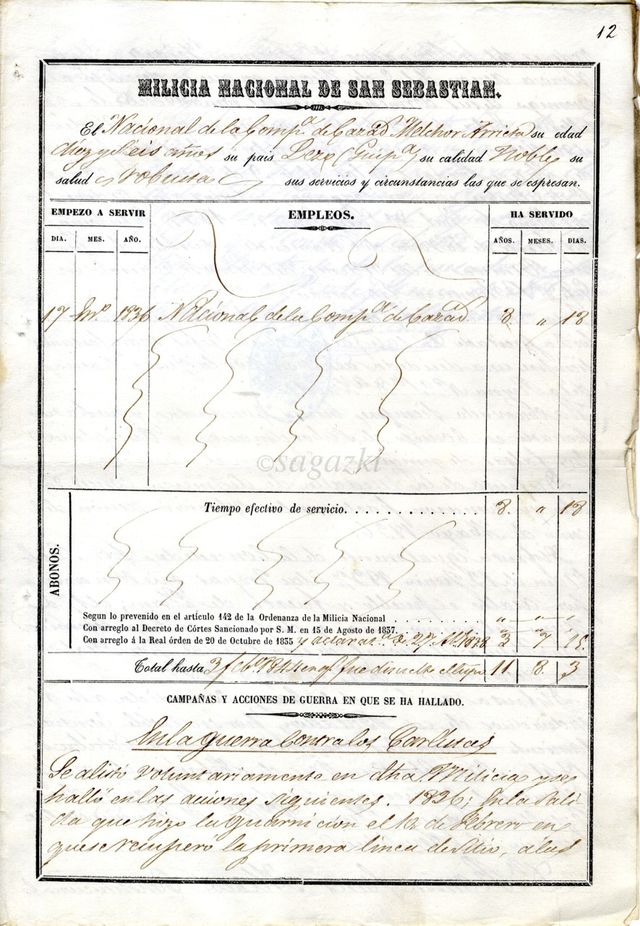 12
MILICIA NACIONAL DE SAN SEBASTIAN.
El Nacional de la Compª de Cazad Melchor Arrieta su edad
diez y seis años su pais Lezo (Guipª) su calidad Noble su
salud robusta sus servicios y circunstancias las que se espresan.
EMPEZO A SERVIR EMPLEOS. HA SERVIDO
DIA. MES. AÑO. AÑOS. MESES. DIAS.
17 1836 Nacional de la Compª de Cazad 8. " 18
©sagazki
ABONOS.
Tiempo efectivo de servicio. . . . . . . . . . . . . . 8. " 18
Segun lo prevenido en el artículo 142 de la Ordenanza de la Milicia Nacional " " "
Con arreglo al Decreto de Córtes Sancionado por S. M. en 15 de Agosto de 1837.
Con arreglo á la Real órden de 20 de Octubre de 1835 y aclarat 1838 3 7 15.
Total hasta 3 fue disuelto 11 8. 3
CAMPAÑAS Y ACCIONES DE GUERRA EN QUE SE HA HALLADO.
En la guerra contra los Carlistas
Se alistó voluntariamente en dha Milicia y se
halló en las acciones siguientes. 1836; En la Sali
da que hizo la Guarnicion el de Febrero en
que se recuperó la primera linea de Sitio, a las